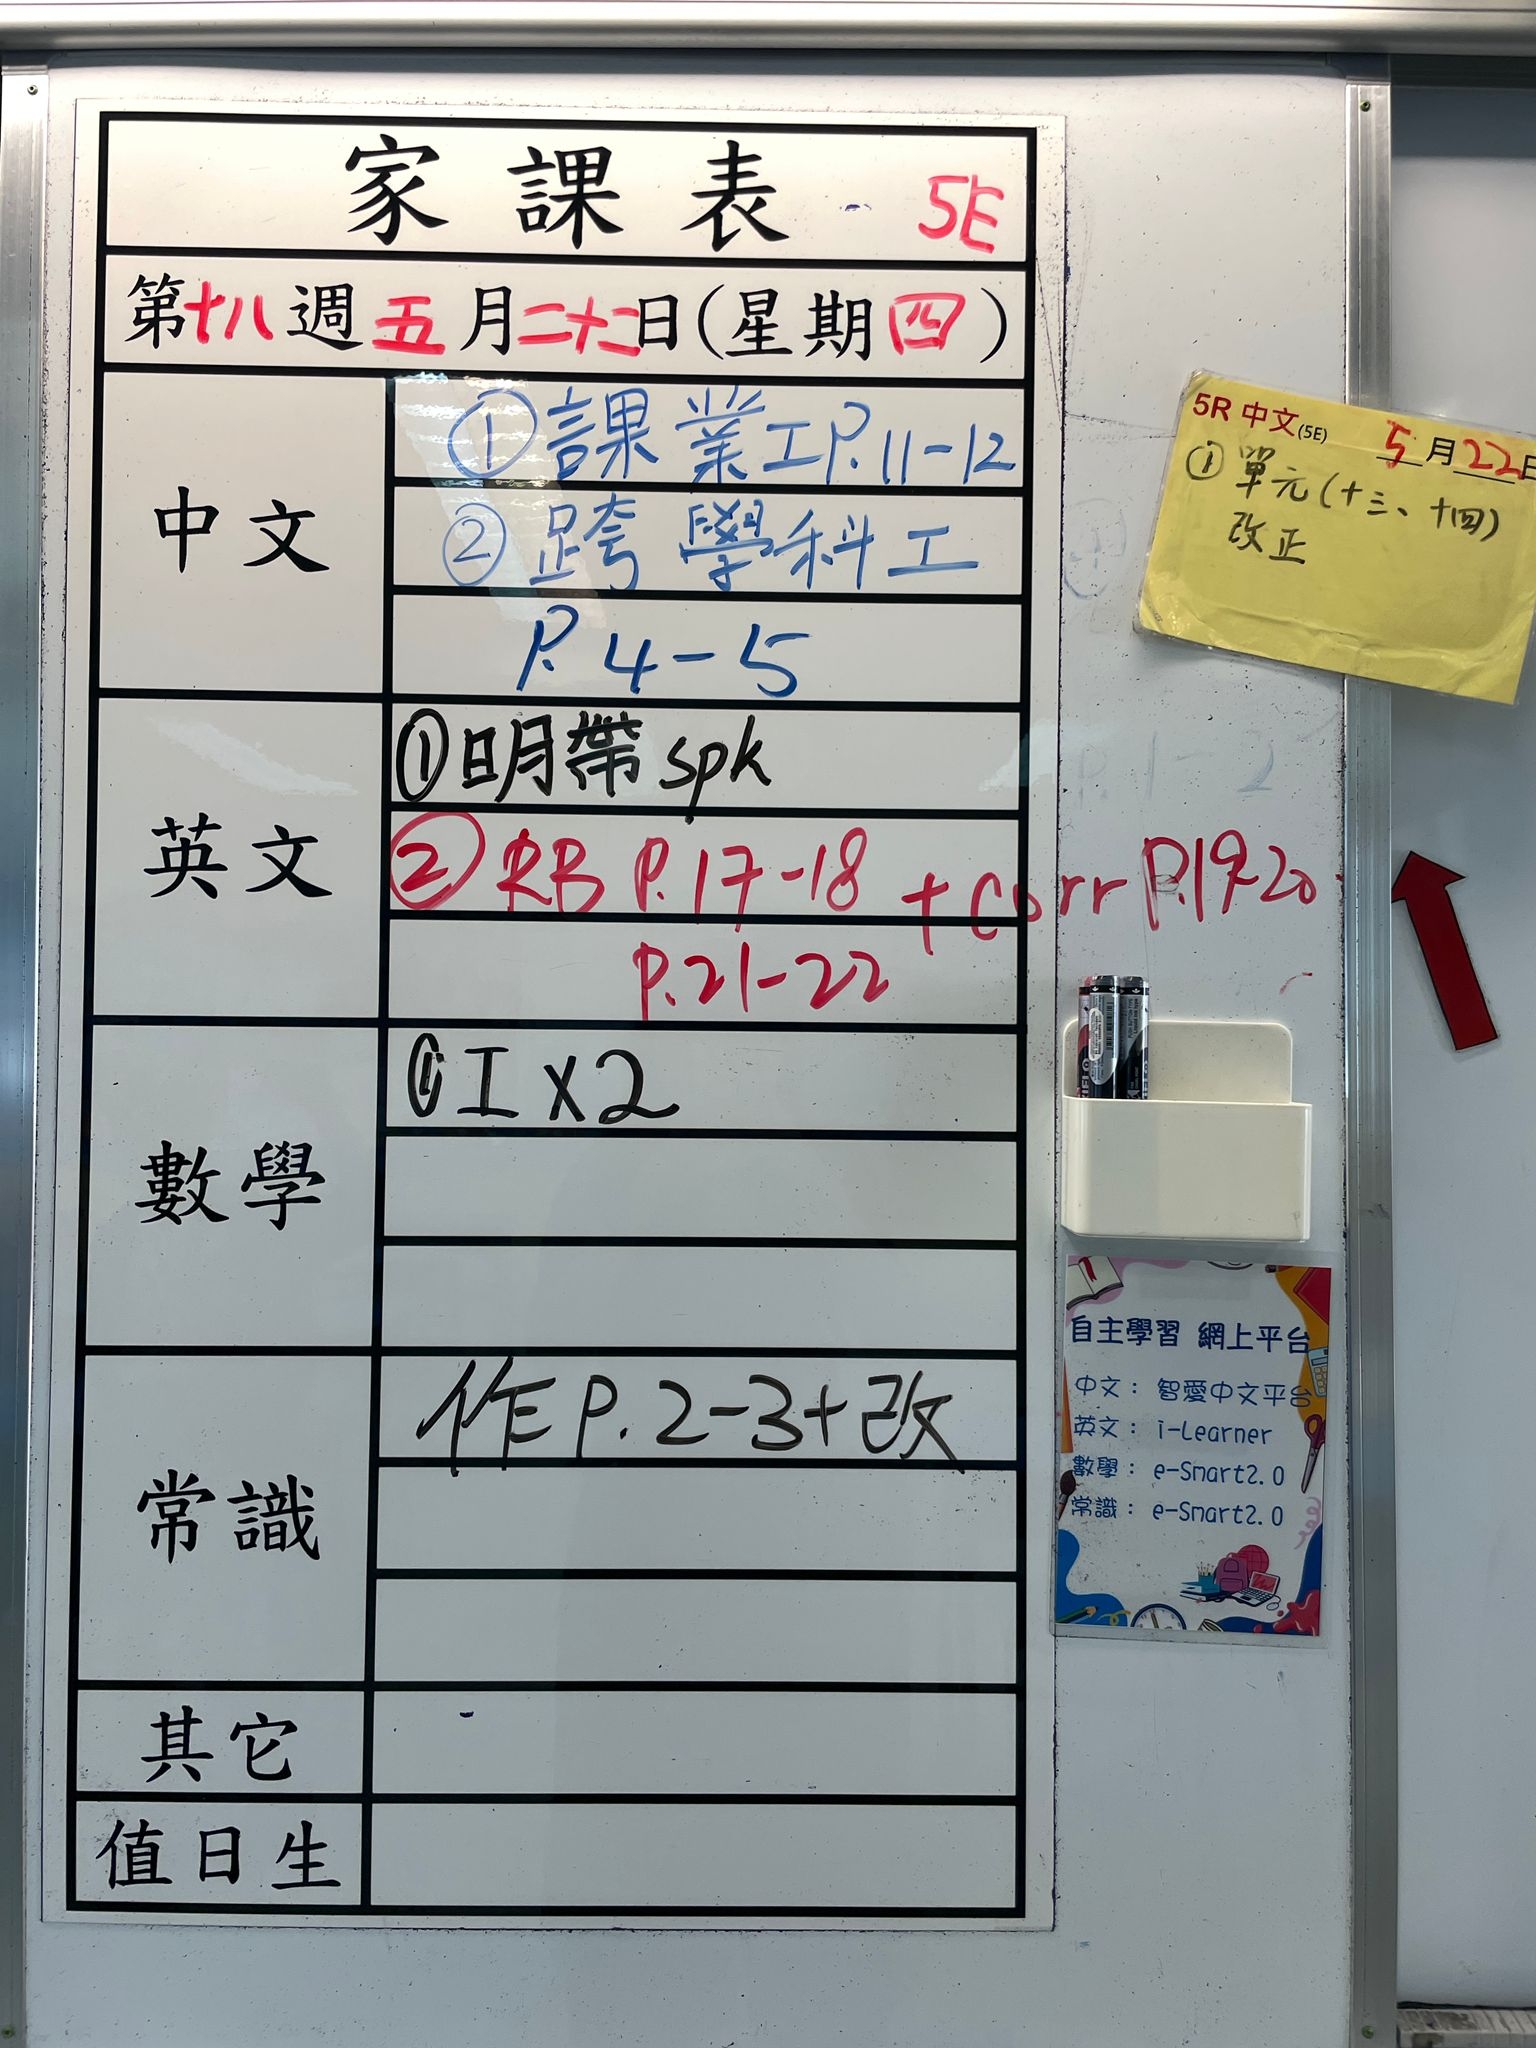 家課表 5E
第十八週五月二十二日(星期四)
中文
①課業工P.11-12
②跨學科工
P.4-5
英文
①明帶spk
②RB P.17-18 + corr P.19-20
P.21-22
數學
①工x2
常識
作P.2-3+改
其它
值日生
5R 中文(5E) 5月22日
①單元(十三、十四)
改正
P.1-2
自主學習 網上平台
中文：智愛中文平台
英文：i-Learner
數學：e-Smart2.0
常識：e-Smart2.0